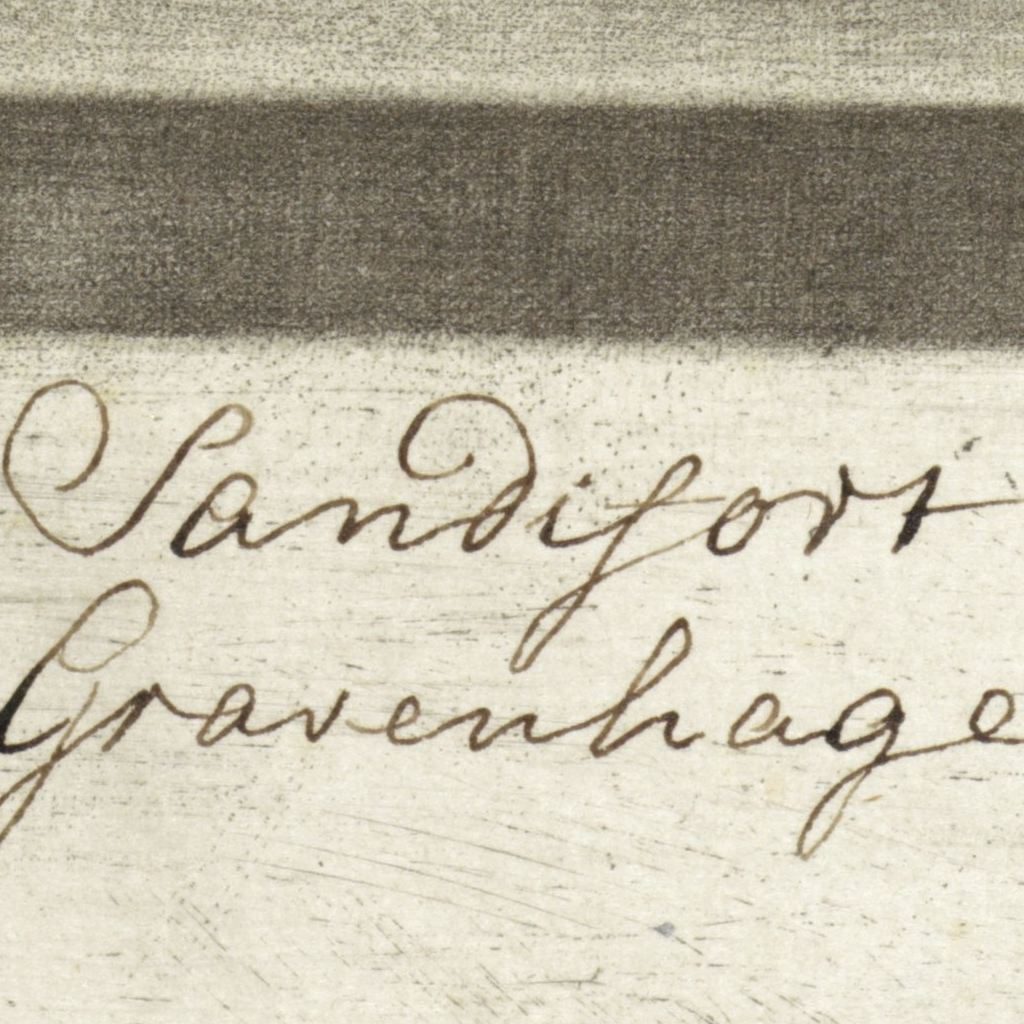 Sandifort
Gravenhage